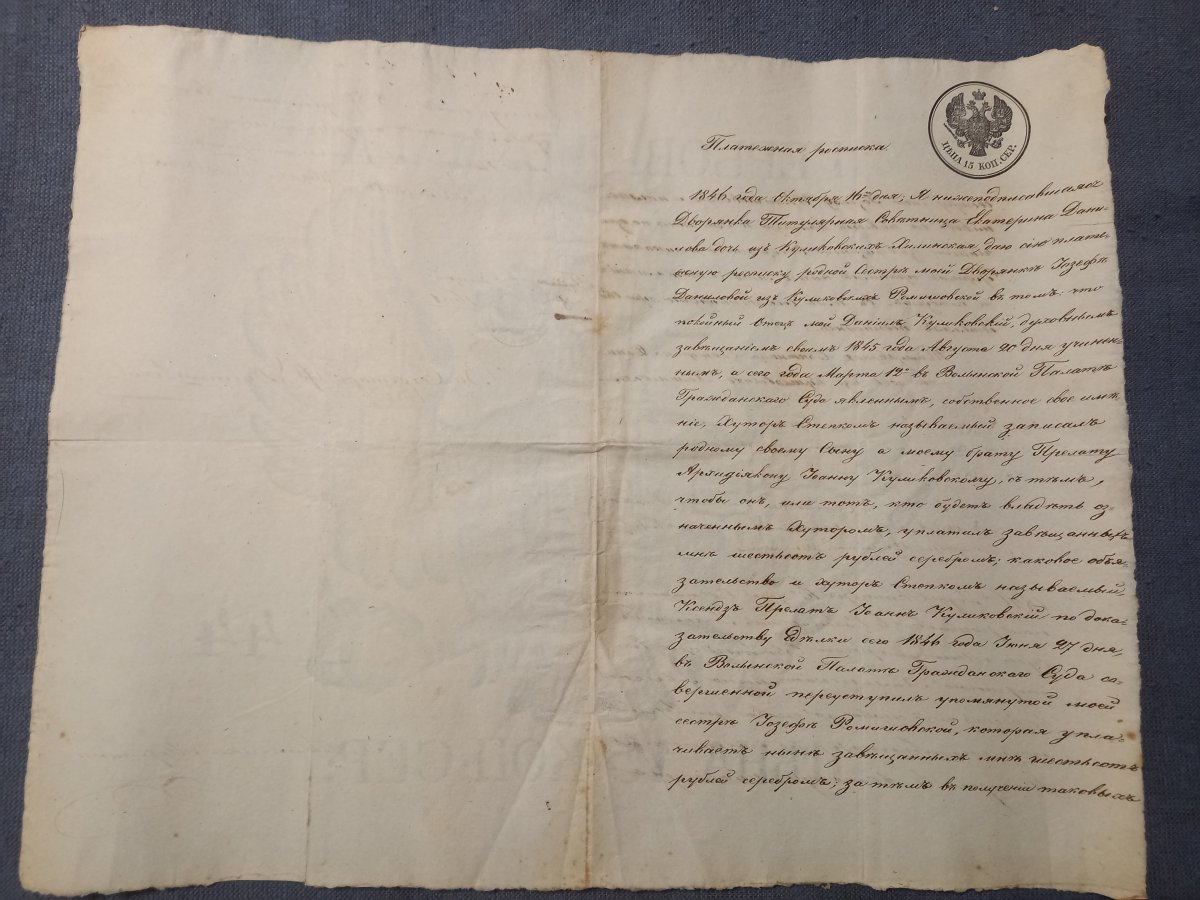 Платежная росписка.
ЦѢНА 15 КОП. СЕР.
1846 года Октября 16го дня, Я нижеподписавшаяся
Дворянка Титулярная Совѣтница Екатерина Дани-
лова дочь изъ Куликовскихъ Хилинская, даю сію плате-
жную росписку родной Сестрѣ моей Дворянкѣ Іозефѣ
Даниловой изъ Куликовскихъ Ромишовской въ томъ: что
покойный Отецъ мой Даніилъ Куликовскій, духовнымъ
завѣщаніемъ своимъ 1845 года Августа 20 дня учинен-
нымъ, а сего года Марта 12го въ Волынской Палатѣ
Гражданскаго Суда явленнымъ, собственное свое имѣ-
ніе, Хуторъ Степкомъ называемый записалъ
родному своему Сыну а моему брату Прелату
Архидіакону Іоанну Куликовскому, съ тѣмъ,
чтобы онъ, или тотъ, кто будетъ владѣть оз-
наченнымъ Хуторомъ, уплатилъ завѣщанныхъ
мнѣ шестьсотъ рублей серебромъ; каковое обя-
зательство и хуторъ Степкомъ называемый
Ксендзъ Прелатъ Іоаннъ Куликовскій по дока-
зательству Сдѣлки сего 1846 года Іюня 27 дня,
въ Волынской Палатѣ Гражданскаго Суда со-
вершенной переуступилъ упомянутой моей
сестрѣ Іозефѣ Ромишовской, которая упла-
чиваетъ нынѣ завѣщанныхъ мнѣ шестьсотъ
рублей серебромъ; за тѣмъ въ полученіи таковыхъ